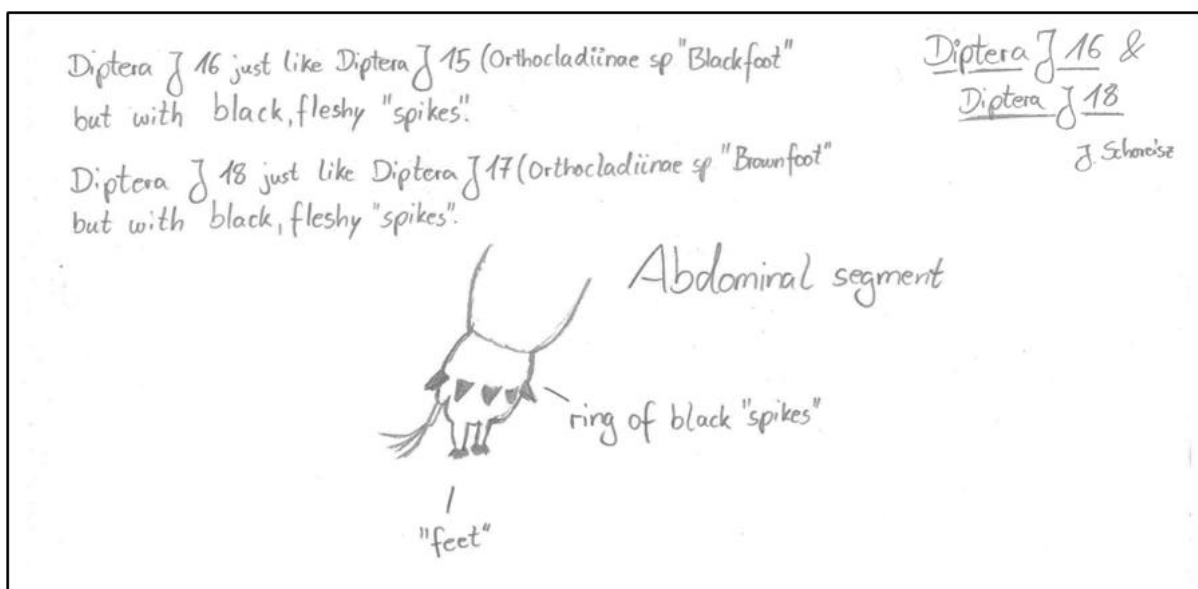 Diptera J 16 just like Diptera J 15 (Orthocladiinae sp "Blackfoot"
but with black, fleshy "spikes".
Diptera J 18 just like Diptera J 17 (Orthocladiinae sp "Brownfoot"
but with black, fleshy "spikes".
Diptera J 16 &
Diptera J 18
J. Schoreisz
Abdominal segment
ring of black "spikes"
"feet"